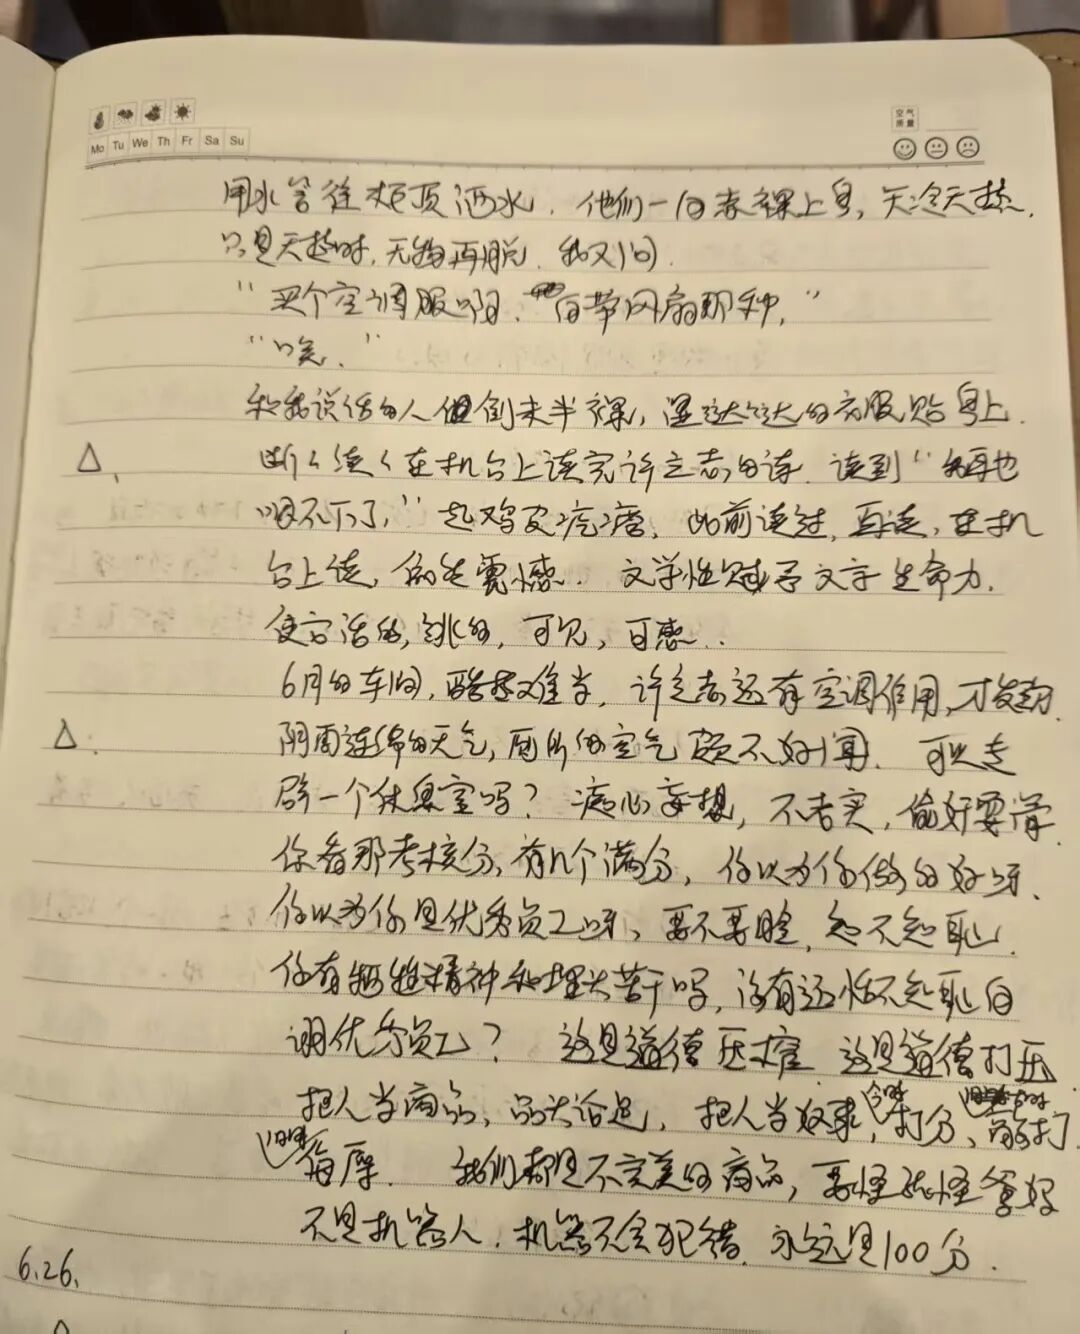 Mo Tu We Th Fr Sa Su
空气质量
用水管往柜顶洒水. 他们一向赤裸上身, 天冷天热.
只是天热时, 无物再脱. 我又问.
"买个空调服啊. 自带风扇那种."
"唉."
和我说话的人但倒未半裸, 湿达达的衣服贴身上.
△. 断々续々在机台上读完许立志的诗. 读到"我再也
咽不下了," 起鸡皮疙瘩. 此前读过, 再读, 在机
台上读, 倍生震憾. 文学性赋予文字生命力.
使它活的, 跳的, 可见, 可感..
6月的车间, 酷热难当. 许立志还有空调作用, 才发动.
△. 阴雨连绵的天气, 厕所的空气颇不好闻. 可以走
辟一个休息室吗? 痴心妄想, 不老实, 偷奸耍滑.
你看那考核分, 有几个满分, 你以为你做的好呀.
你以为你是优秀员工呀, 要不要脸, 知不知耻.
你有牺牲精神和埋头苦干吗, 没有还恬不知耻自
诩优秀员工? 这是道德压榨. 这是道德打压
把人当商品, 品头论足, 把人当奴隶, 今时打分、旧时鞭打
旧时侮辱. 我们都是不完美的商品, 要怪就怪爹妈
不是机器人. 机器不会犯错. 永远是100分.
6.26.